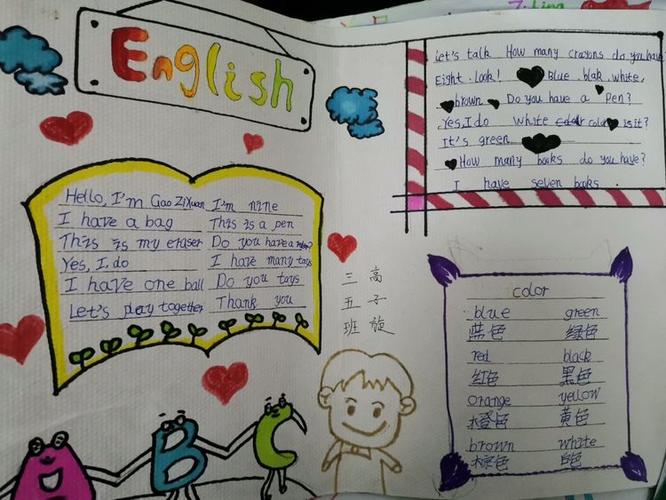 English
Hello, I'm Gao ZiXuan I'm nine
I have a bag This is a pen
This is my eraser Do you have a ruler?
Yes, I do I have many toys
I have one ball Do you toys
Let's play together Thank you
A B C
三五班
高子旋
Let's talk How many crayons do you have
Eight. Look! Blue blak white,
brown Do you have a Pen?
Yes, I do white color is it?
It's green
How many books do you have?
I have seven books.
color
blue green
蓝色 绿色
red black
红色 黑色
orange yellow
橙色 黄色
brown white
棕色 白色